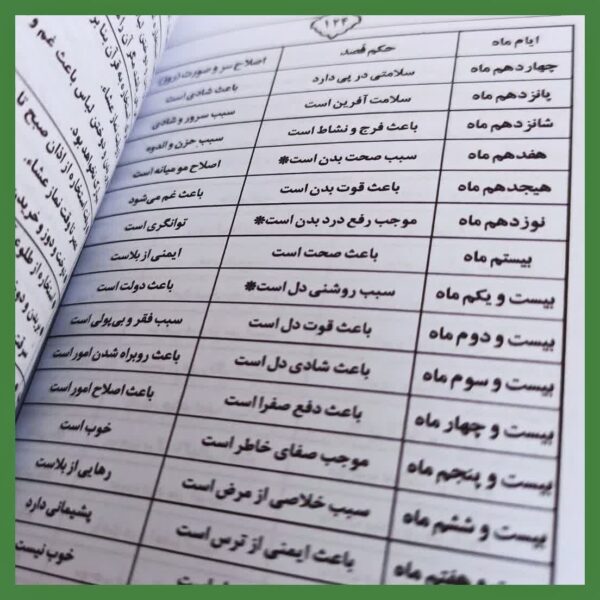 ۱۲۴
ایام ماه حکم فصد اصلاح سر و صورت
چهاردهم ماه سلامتی در پی دارد باعث شادی است
پانزدهم ماه سلامت آفرین است سبب سرور و شادی
شانزدهم ماه باعث فرج و نشاط است سبب حزن و اندوه
هفدهم ماه سبب صحت بدن است* اصلاح مو میانه است
هیجدهم ماه باعث قوت بدن است باعث غم می‌شود
نوزدهم ماه موجب رفع درد بدن است* توانگری است
بیستم ماه باعث صحت است ایمنی از بلاست
بیست و یکم ماه سبب روشنی دل است* باعث دولت است
بیست و دوم ماه باعث قوت دل است سبب فقر و بی‌پولی است
بیست و سوم ماه باعث شادی دل است باعث روبراه شدن امور است
بیست و چهار ماه باعث دفع صفرا است باعث اصلاح امور است
بیست و پنجم ماه موجب صفای خاطر است خوب است
بیست و ششم ماه سبب خلاصی از مرض است رهایی از بلاست
و هفتم ماه باعث ایمنی از ترس است پشیمانی دارد
است خوب نیست
و دوختن لباس باعث غم و
نخواهد بود.
استخاره از اذان صبح تا
وقت نماز عشاء.